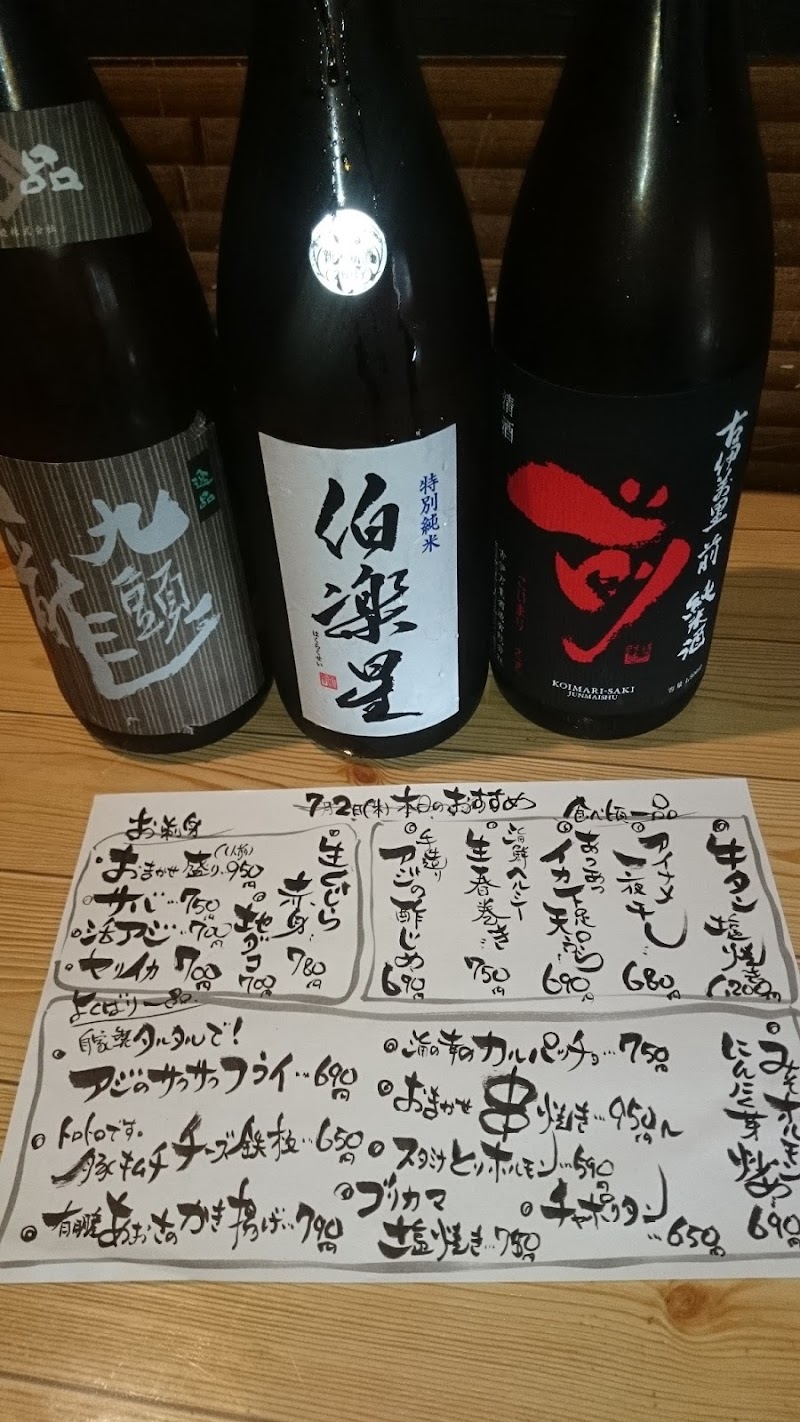 品
九頭龍
逸品
特別純米
伯楽星
はくらくせい
清酒
前
こいまり さき
古伊万里 前 純米酒
KOIMARI-SAKI
JUNMAISHU
7月2日(木)本日のおすすめ
お刺身
おまかせ盛り 950円
サバ…750円
活アジ…700円
ヤリイカ 700円
生くじら赤身…780円
地ダコ 700円
食べ頃一品
牛タン塩焼き 1,200円
アイナメ一夜干し…680円
あつあつイカ下足天ぷら 690円
海鮮ヘルシー生春巻き…750円
手造りアジの酢じめ 690円
よくばり一品
自家製タルタルで!
アジのサクサクフライ…690円
トロトロです。
豚キムチチーズ鉄板…650円
有明産あおさのかき揚げ…790円
海の幸のカルパッチョ…750円
おまかせ串焼き…950円〜
スタミナとりホルモン…590円
ブリカマ塩焼き…780円
チャポリタン…650円
みそホルモンにんにく芽炒め…690円